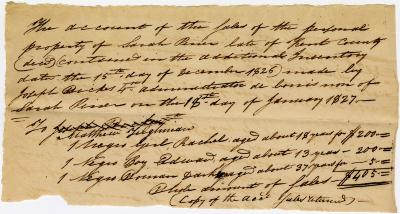 The account of the Sales of the personal
property of Sarah River late of Kent County
(decd) contained in the additional Inventory
date the 15th day of December 1826, made by
Joseph administrator de bonis non of
Sarah River on the 18th day of January 1827.—
To
Matthew Tilghman
1 Negro Girl Rachel aged about 18 years for $200=
1 Negro Boy Edward, aged about 13 years - 200=
1 Negro Woman aged about 37 years for - 5=
amount of Sales $405=
(Copy of the Acct Sales returned)